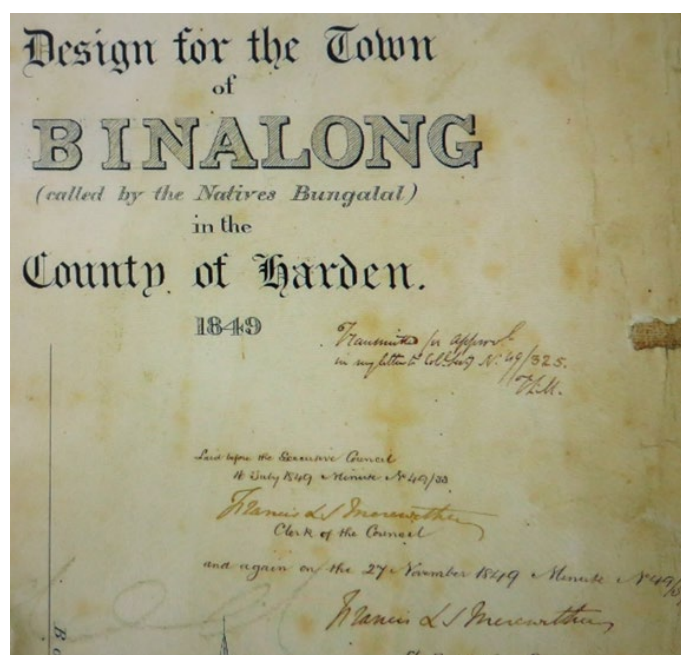 Design for the Town
of
BINALONG
(called by the Natives Bungalal)
in the
County of Harden.
1849
Transmitted for approval
in my letter to Col. Sec. No. 49/325.
T.L.M.
Laid before the Executive Council
July 1849 Minute No 49/33
Francis L S Merewether
Clerk of the Council
and again on the 27 November 1849 Minute No 49/
Francis L S Merewether